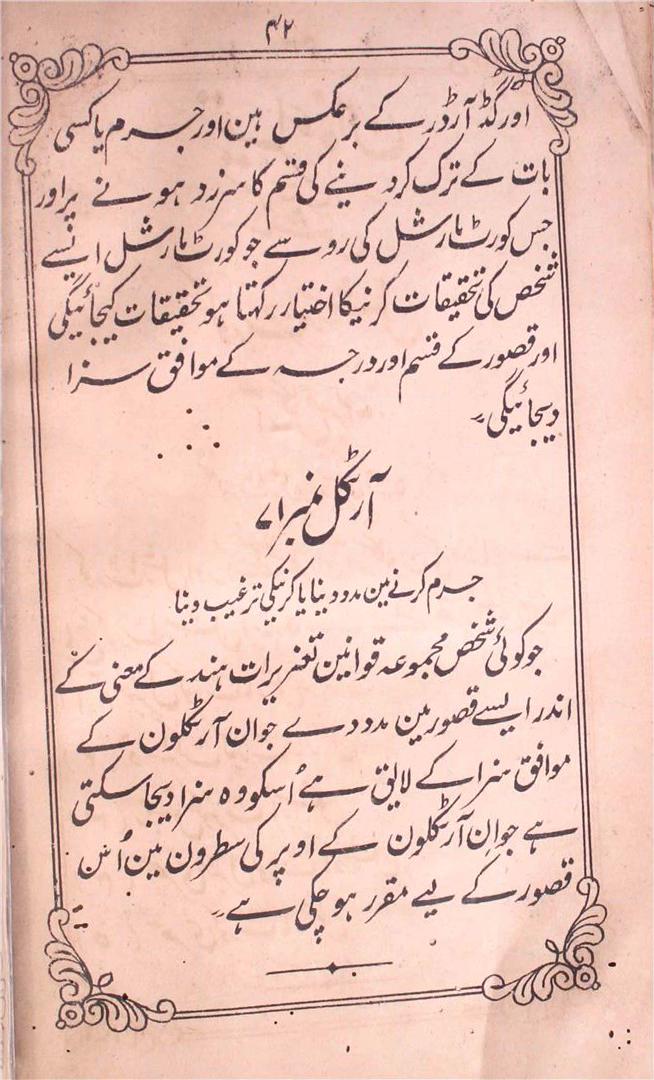 ۴۲
اور گڈ آرڈر کے برعکس ہین اور جرم یا کسی
بات کے ترک کردینے کی قسم کا سرزد ہونے پر اور
جس کورٹ مارشل کی رو سے جو کورٹ مارشل ایسے
شخص کی تحقیقات کرنیکا اختیار رکہتا ہو تحقیقات کیجائیگی
اور قصور کے قسم اور درجہ کے موافق سزا
دیجائیگی۔
آرٹکل نمبر ۷۱
جرم کرنے مین مدد دینا یا کرنیکی ترغیب دینا
جو کوئی شخص مجموعہ قوانین تعزیرات ہند کے معنی کے
اندر ایسے قصور مین مدد دے جو ان آرٹکلون کے
موافق سزا کے لایق ہے اُسکو وہ سزا دیجا سکتی
ہے جو اِن آرٹکلون کے اوپر کی سطرون مین اُس
قصور کے لیے مقرر ہو چکی ہے۔